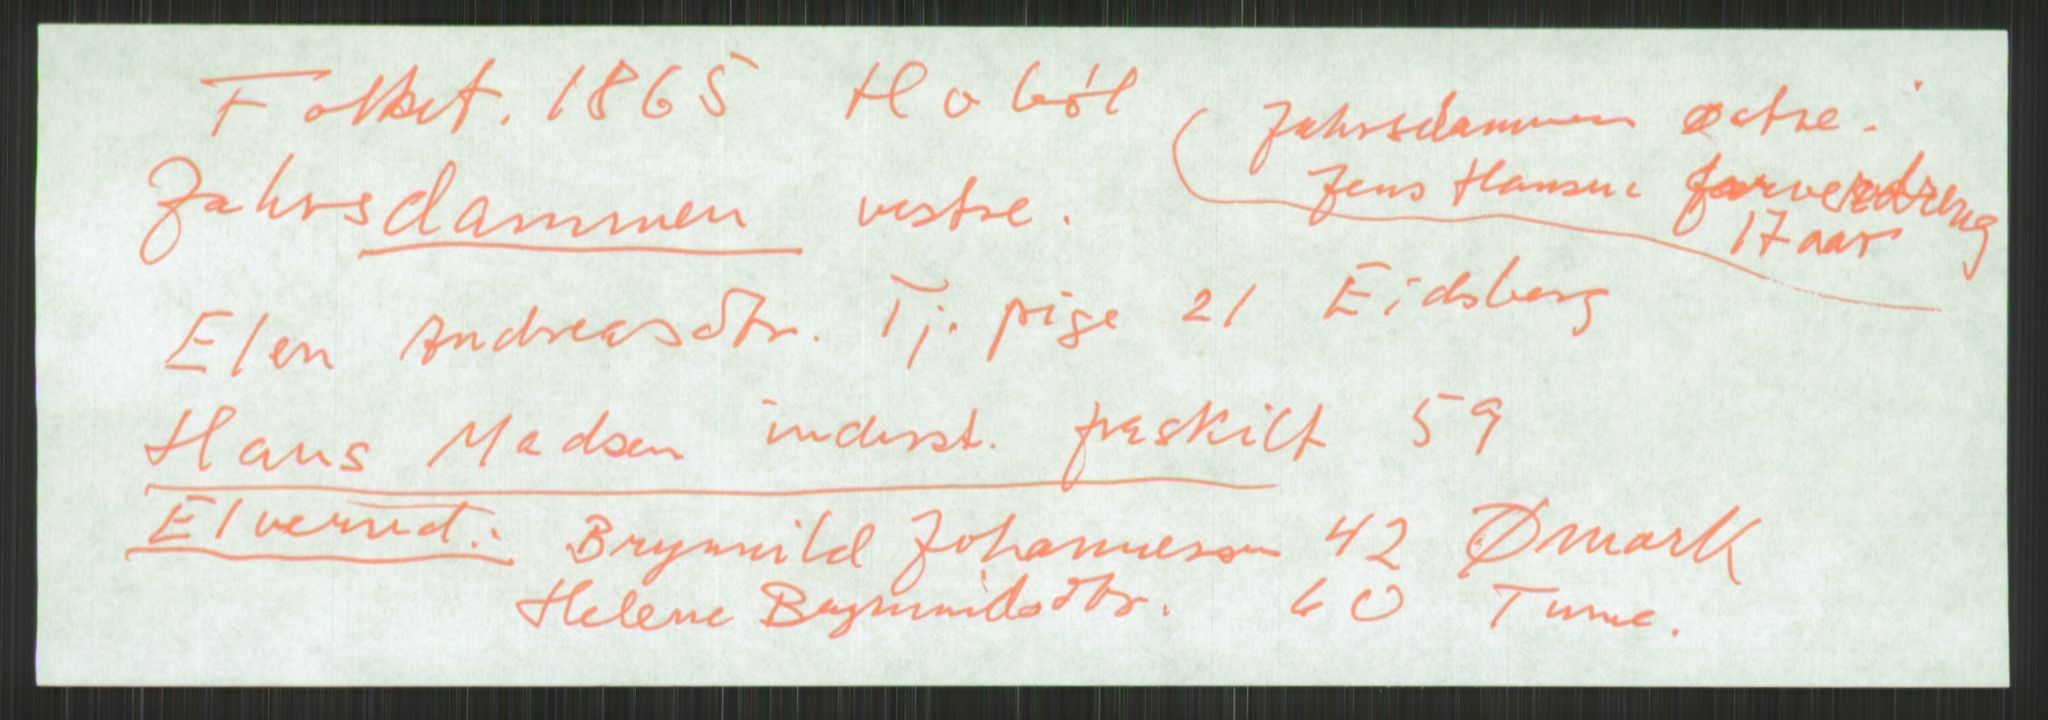 Folket. 1865 Hobøl
Jahrsdammen vestre.
(Jahrsdammen østre.
Jens Hansen farverdreng
17 aar
Elen Andreasdtr. Tj. pige 21 Eidsberg
Hans Madsen inderst. fraskilt 59
Elverud: Brynnild Johannesen 42 Ømark
Helene Brynnildsdtr. 60 Tune.